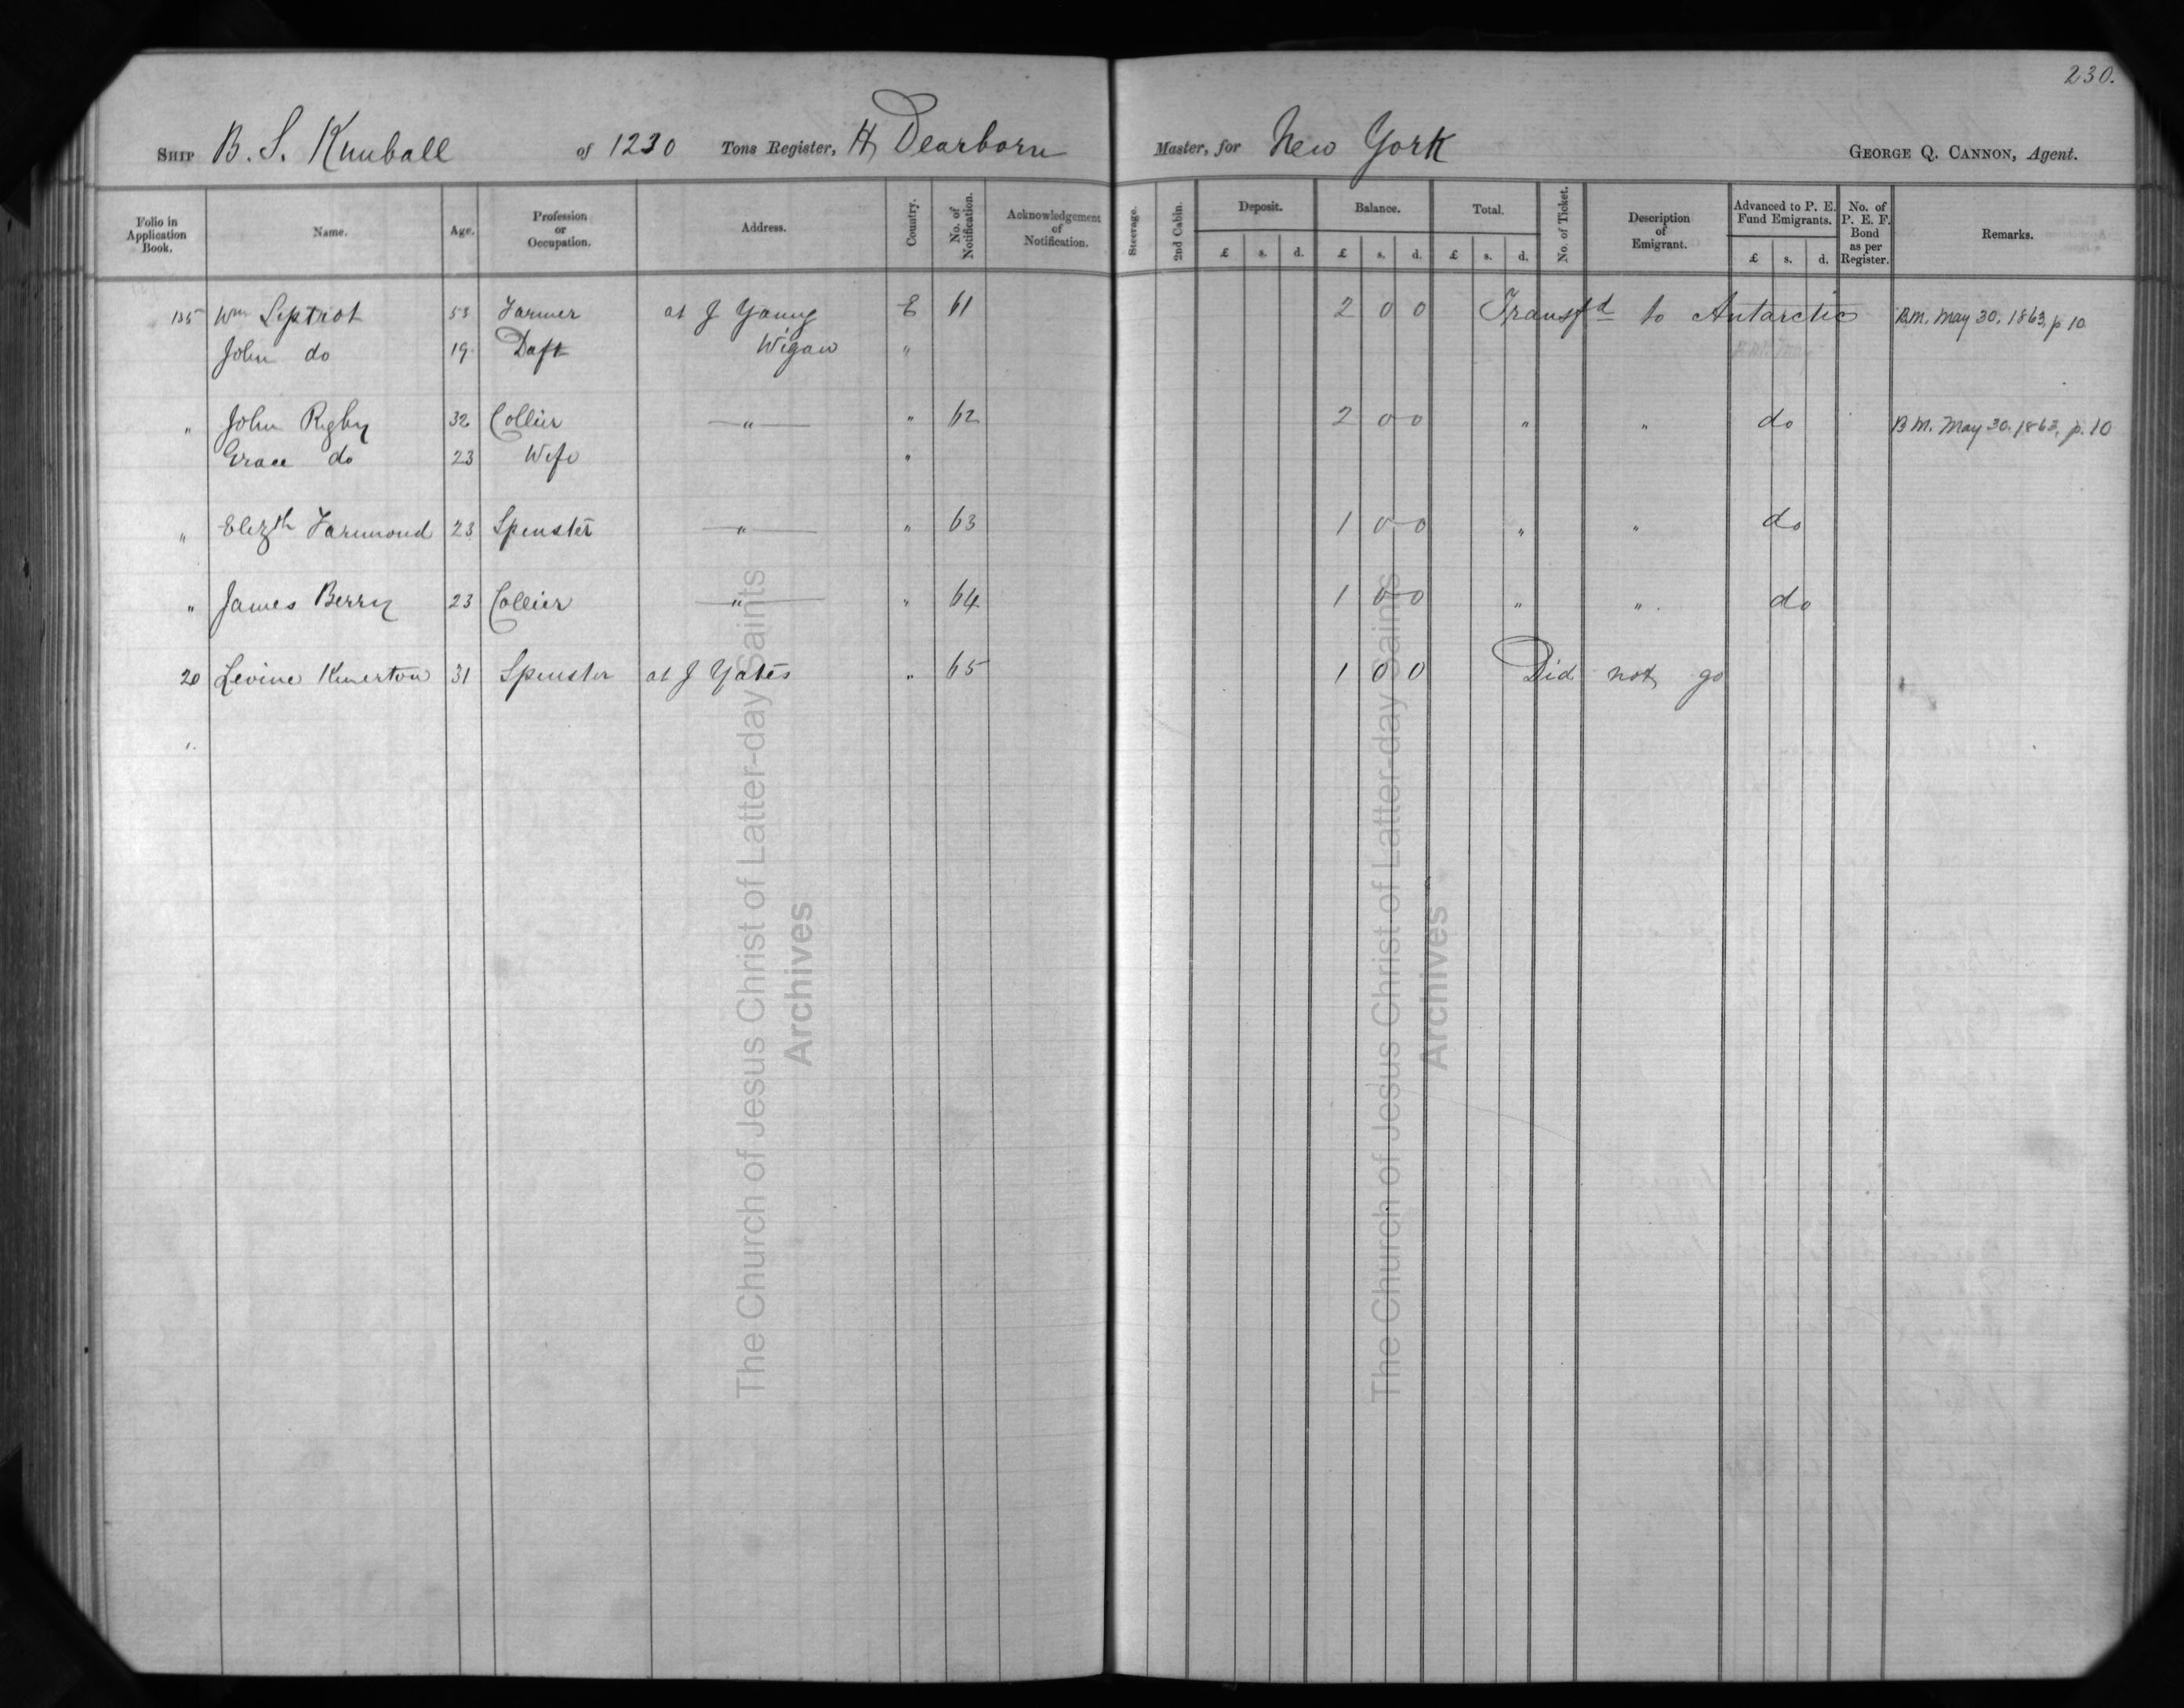 230.
SHIP B. S. Kimball of 1230 Tons Register, H Dearborn Master, for New York GEORGE Q. CANNON, Agent.
Folio in Application Book. Name. Age. Profession or Occupation. Address. Country. No. of Notification. Acknowledgement of Notification. Steerage. 2nd Cabin. Deposit. Balance. Total. No. of Ticket. Description of Emigrant. Advanced to P. E. Fund Emigrants. No. of P. E. F. Bond as per Register. Remarks.
£ s. d. £ s. d. £ s. d. £ s. d.
135 Wm Leptrot 53 Farmer at J Young E 61 2 0 0 Transfd to Antarctic B.M. May 30, 1863, p 10
John do 19 Daft Wigan "
" John Rigby 32 Collier " " 62 2 0 0 " " do B M. May 30. 1863, p. 10
Grace do 23 Wife "
" Elizth Farimond 23 Spinster " " 63 1 0 0 " " do
" James Berry 23 Collier " " 64 1 0 0 " " do
20 Levine Kinerton 31 Spinster at J Yates " 65 1 0 0 Did not go
"
The Church of Jesus Christ of Latter-day Saints
Archives
The Church of Jesus Christ of Latter-day Saints
Archives